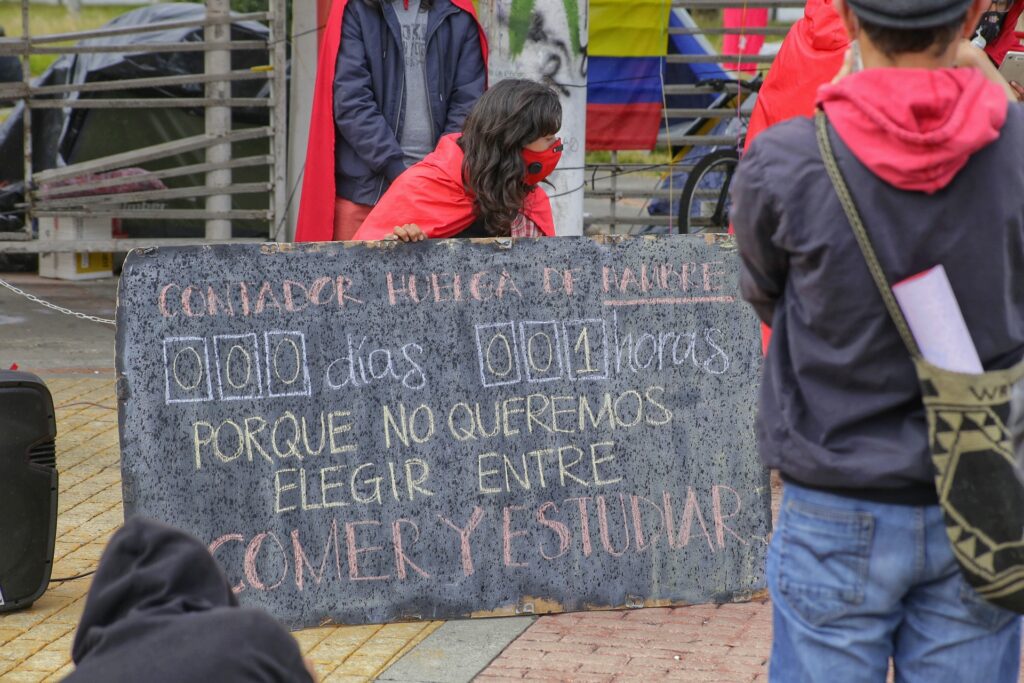 CONTADOR HUELGA DE HAMBRE
000 días 001 horas
PORQUE NO QUEREMOS
ELEGIR ENTRE
COMER Y ESTUDIAR